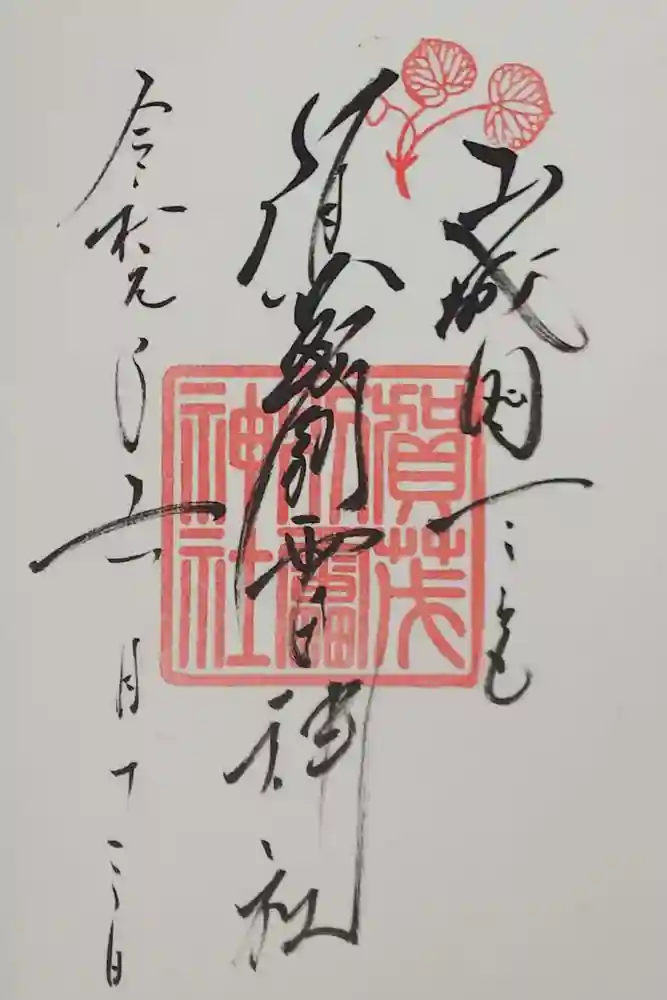 山城国一之宮
賀茂別雷神社
令和元年六月十二日
賀茂
別雷
神社